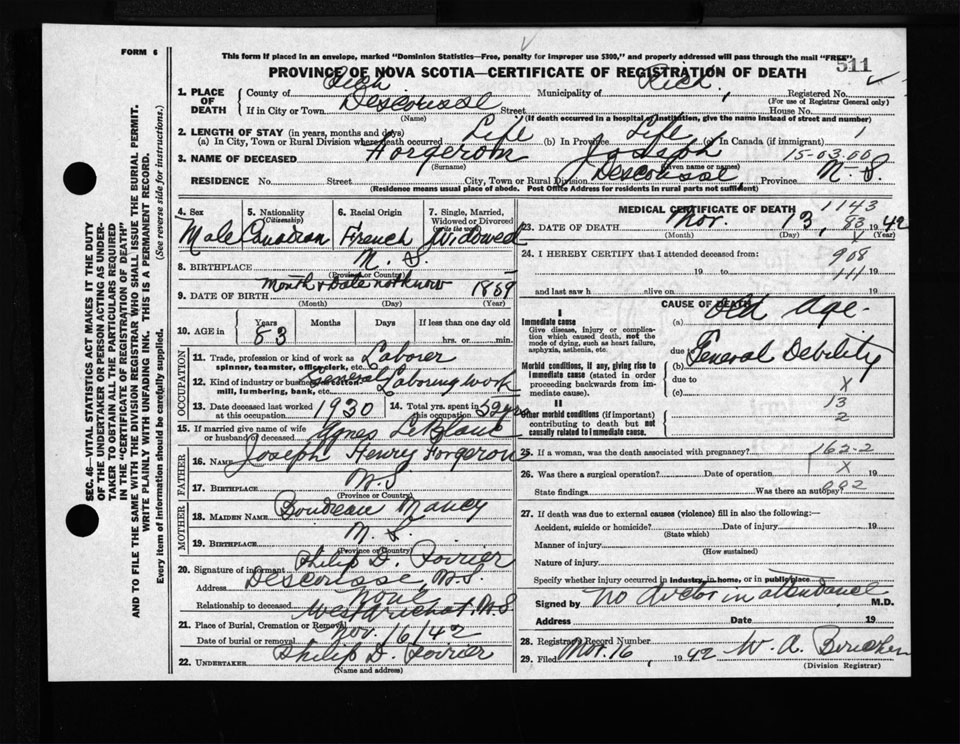 FORM 6
This form if placed in an envelope, marked "Dominion Statistics—Free, penalty for improper use $300," and properly addressed will pass through the mail "FREE"
511
PROVINCE OF NOVA SCOTIA—CERTIFICATE OF REGISTRATION OF DEATH
1. PLACE OF DEATH County of Rich Municipality of Rich. Registered No.
(For use of Registrar General only)
If in City or Town Descousse Street House No.
(Name) (If death occurred in a hospital or institution, give the name instead of street and number)
2. LENGTH OF STAY (in years, months and days)
(a) In City, Town or Rural Division where death occurred Life (b) In Province Life (c) In Canada (if immigrant) 1
3. NAME OF DECEASED Forgeron Joseph 15-03.00
(Surname) (Given name or names)
RESIDENCE No. Street City, Town or Rural Division Descousse Province N. S.
(Residence means usual place of abode. Post Office Address for residents in rural parts not sufficient)
4. Sex Male
5. Nationality (Citizenship) Canadian
6. Racial Origin French
7. Single, Married, Widowed or Divorced (write the word) Widowed
8. BIRTHPLACE N. S.
(Province or Country)
9. DATE OF BIRTH Month & Date not know 1859
(Month) (Day) (Year)
10. AGE in Years 83 Months Days If less than one day old
hrs. or min.
OCCUPATION
11. Trade, profession or kind of work as spinner, teamster, office clerk, etc. Laborer
12. Kind of industry or business, as cotton-mill, lumbering, bank, etc. General Laboring work
13. Date deceased last worked at this occupation 1930
14. Total yrs. spent in this occupation 52 yrs
15. If married give name of wife or husband of deceased Agnes LeBlanc
FATHER
16. Name Joseph Henry Forgeron
17. Birthplace N. S
(Province or Country)
MOTHER
18. Maiden Name Boudreau Nancy
19. Birthplace N. S.
(Province or Country)
20. Signature of informant Philip D. Poirier
Address Descousse, N.S.
Relationship to deceased none
21. Place of Burial, Cremation or Removal West Arichat, N.S
Date of burial or removal Nov. 16/42
22. UNDERTAKER Philip D. Poirier
(Name and address)
MEDICAL CERTIFICATE OF DEATH 1143
23. DATE OF DEATH Nov. 13, 83 1942
(Month) (Day) (Year)
24. I HEREBY CERTIFY that I attended deceased from:
908
19 to 111 19
and last saw h alive on 19
CAUSE OF DEATH
I
Immediate cause
Give disease, injury or complication which caused death, not the mode of dying, such as heart failure, asphyxia, asthenia, etc.
(a) Old Age-
due to
Morbid conditions, if any, giving rise to immediate cause (stated in order proceeding backwards from immediate cause).
(b) General Debility
due to X
(c)
II
Other morbid conditions (if important) contributing to death but not causally related to immediate cause.
13
2
25. If a woman, was the death associated with pregnancy? 162-2
26. Was there a surgical operation? Date of operation X 19
State findings Was there an autopsy?
27. If death was due to external causes (violence) fill in also the following:—
Accident, suicide or homicide? Date of injury 19
(State which)
Manner of injury
(How sustained)
Nature of injury
Specify whether injury occurred in industry, in home, or in public place
Signed by No doctor in attendance M.D.
Address Date 19
28. Registrar's Record Number
29. Filed Nov. 16, 1942 W. A.
(Division Registrar)
SEC. 46—VITAL STATISTICS ACT MAKES IT THE DUTY
OF THE UNDERTAKER OR PERSON ACTING AS UNDER-
TAKER TO OBTAIN ALL THE PARTICULARS REQUIRED
IN THE "CERTIFICATE OF REGISTRATION OF DEATH"
AND TO FILE THE SAME WITH THE DIVISION REGISTRAR WHO SHALL ISSUE THE BURIAL PERMIT.
WRITE PLAINLY WITH UNFADING INK. THIS IS A PERMANENT RECORD.
Every item of information should be carefully supplied. (See reverse side for instructions.)